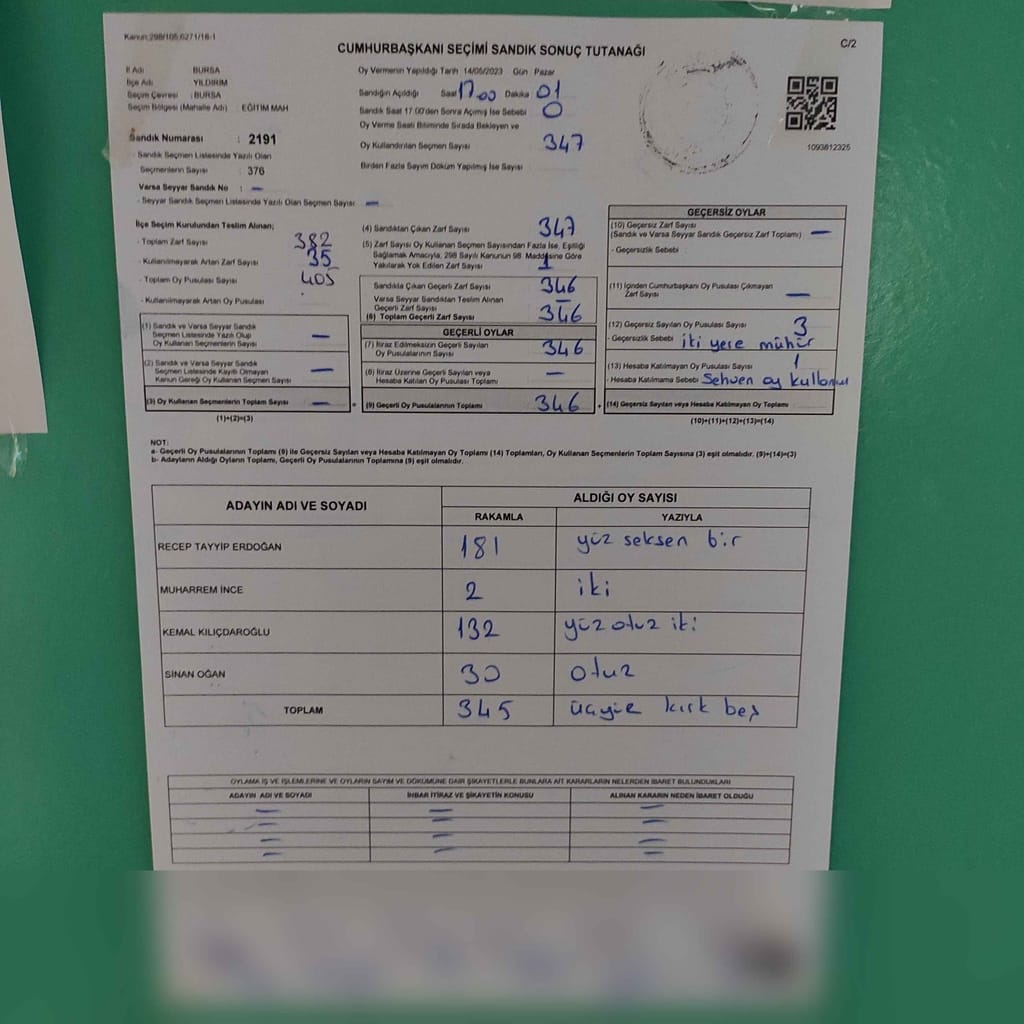 Kanun:298/105,6271/16-1
CUMHURBAŞKANI SEÇİMİ SANDIK SONUÇ TUTANAĞI
C/2
İl Adı BURSA
İlçe Adı YILDIRIM
Seçim Çevresi : BURSA
Seçim Bölgesi (Mahalle Adı) : EĞİTİM MAH
Sandık Numarası : 2191
- Sandık Seçmen Listesinde Yazılı Olan
Seçmenlerin Sayısı : 376
Varsa Seyyar Sandık No : –
- Seyyar Sandık Seçmen Listesinde Yazılı Olan Seçmen Sayısı –
Oy Vermenin Yapıldığı Tarih 14/05/2023 Gün Pazar
Sandığın Açıldığı Saat 17.00 Dakika 01
Sandık Saat 17:00'den Sonra Açılmış İse Sebebi 0
Oy Verme Saati Bitiminde Sırada Bekleyen ve
Oy Kullandırılan Seçmen Sayısı 347
Birden Fazla Sayım Döküm Yapılmış İse Sayısı
1093812325
İlçe Seçim Kurulundan Teslim Alınan;
- Toplam Zarf Sayısı 382
- Kullanılmayarak Artan Zarf Sayısı 35
- Toplam Oy Pusulası Sayısı 405
- Kullanılmayarak Artan Oy Pusulası
(1) Sandık ve Varsa Seyyar Sandık
Seçmen Listesinde Yazılı Olup
Oy Kullanan Seçmenlerin Sayısı –
(2) Sandık ve Varsa Seyyar Sandık
Seçmen Listesinde Kayıtlı Olmayan
Kanun Gereği Oy Kullanan Seçmen Sayısı –
(3) Oy Kullanan Seçmenlerin Toplam Sayısı –
(1)+(2)=(3)
(4) Sandıktan Çıkan Zarf Sayısı 347
(5) Zarf Sayısı Oy Kullanan Seçmen Sayısından Fazla İse, Eşitliği
Sağlamak Amacıyla, 298 Sayılı Kanunun 98. Maddesine Göre
Yakılarak Yok Edilen Zarf Sayısı 1
Sandıkta Çıkan Geçerli Zarf Sayısı 346
Varsa Seyyar Sandıktan Teslim Alınan
Geçerli Zarf Sayısı –
(6) Toplam Geçerli Zarf Sayısı 346
GEÇERLİ OYLAR
(7) İtiraz Edilmeksizin Geçerli Sayılan
Oy Pusulalarının Sayısı 346
(8) İtiraz Üzerine Geçerli Sayılan veya
Hesaba Katılan Oy Pusulası Toplamı –
(9) Geçerli Oy Pusulalarının Toplamı 346
GEÇERSİZ OYLAR
(10) Geçersiz Zarf Sayısı
(Sandık ve Varsa Seyyar Sandık Geçersiz Zarf Toplamı) –
- Geçersizlik Sebebi
(11) İçinden Cumhurbaşkanı Oy Pusulası Çıkmayan
Zarf Sayısı –
(12) Geçersiz Sayılan Oy Pusulası Sayısı 3
- Geçersizlik Sebebi iki yere mühür
(13) Hesaba Katılmayan Oy Pusulası Sayısı 1
- Hesaba Katılmama Sebebi Sehven oy
(14) Geçersiz Sayılan veya Hesaba Katılmayan Oy Toplamı
(10)+(11)+(12)+(13)=(14)
NOT:
a- Geçerli Oy Pusulalarının Toplamı (9) ile Geçersiz Sayılan veya Hesaba Katılmayan Oy Toplamı (14) Toplamları, Oy Kullanan Seçmenlerin Toplam Sayısına (3) eşit olmalıdır. (9)+(14)=(3)
b- Adayların Aldığı Oyların Toplamı, Geçerli Oy Pusulalarının Toplamına (9) eşit olmalıdır.
ADAYIN ADI VE SOYADI ALDIĞI OY SAYISI
RAKAMLA YAZIYLA
RECEP TAYYİP ERDOĞAN 181 yüz seksen bir
MUHARREM İNCE 2 iki
KEMAL KILIÇDAROĞLU 132 yüz otuz iki
SİNAN OĞAN 30 otuz
TOPLAM 345 üçyüz kırk beş
OYLAMA İŞ VE İŞLEMLERİNE VE OYLARIN SAYIM VE DÖKÜMÜNE DAİR ŞİKAYETLERLE BUNLARA AİT KARARLARIN NELERDEN İBARET BULUNDUKLARI
ADAYIN ADI VE SOYADI İHBAR İTİRAZ VE ŞİKAYETİN KONUSU ALINAN KARARIN NEDEN İBARET OLDUĞU
– – –
– – –
– – –
– – –